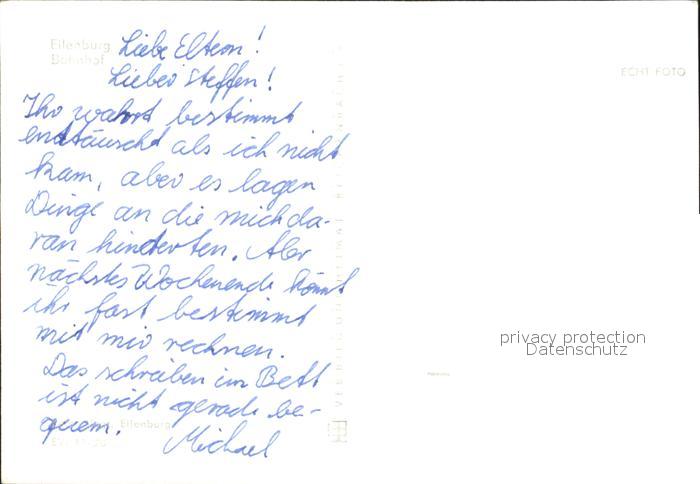 Eilenburg
Bahnhof
ECHT FOTO
Liebe Eltern!
Lieber Steffen!
Ihr wahrt bestimmt
enttäuscht als ich nicht
kam, aber es lagen
Dinge an die mich da-
ran hinderten. Aber
nächstes Wochenende könnt
ihr fast bestimmt
mit mir rechnen.
Das schreiben im Bett
ist nicht gerade be-
quem.
Michael
Eilenburg
privacy protection
Datenschutz